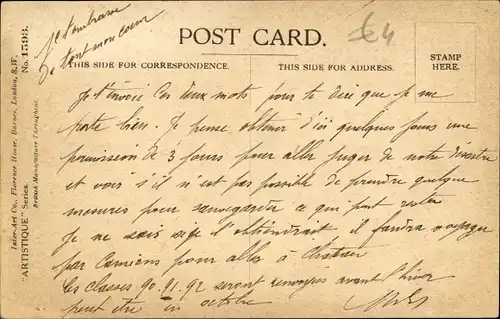 Je t'embrasse
de tout mon coeur
POST CARD.
64
THIS SIDE FOR CORRESPONDENCE.
THIS SIDE FOR ADDRESS.
STAMP
HERE.
Inter-Art Co., Florence House, Barnes, London, S.W.
"ARTISTIQUE" Series. No. 1593.
British Manufacture Throughout.
Je t'envoie ces deux mots pour te dire que je me
porte bien. Je pense obtenir d'ici quelques jours une
permission de 3 jours pour aller juger de notre désastre
et voir s'il n'est pas possible de prendre quelque
mesures pour sauvegarder ce qui peut rester
Je ne sais si je l'obtiendrai, il faudra voyager
par camions pour aller à
les classes 90.91.92 seront renvoyées avant l'hiver
peut être en octobre